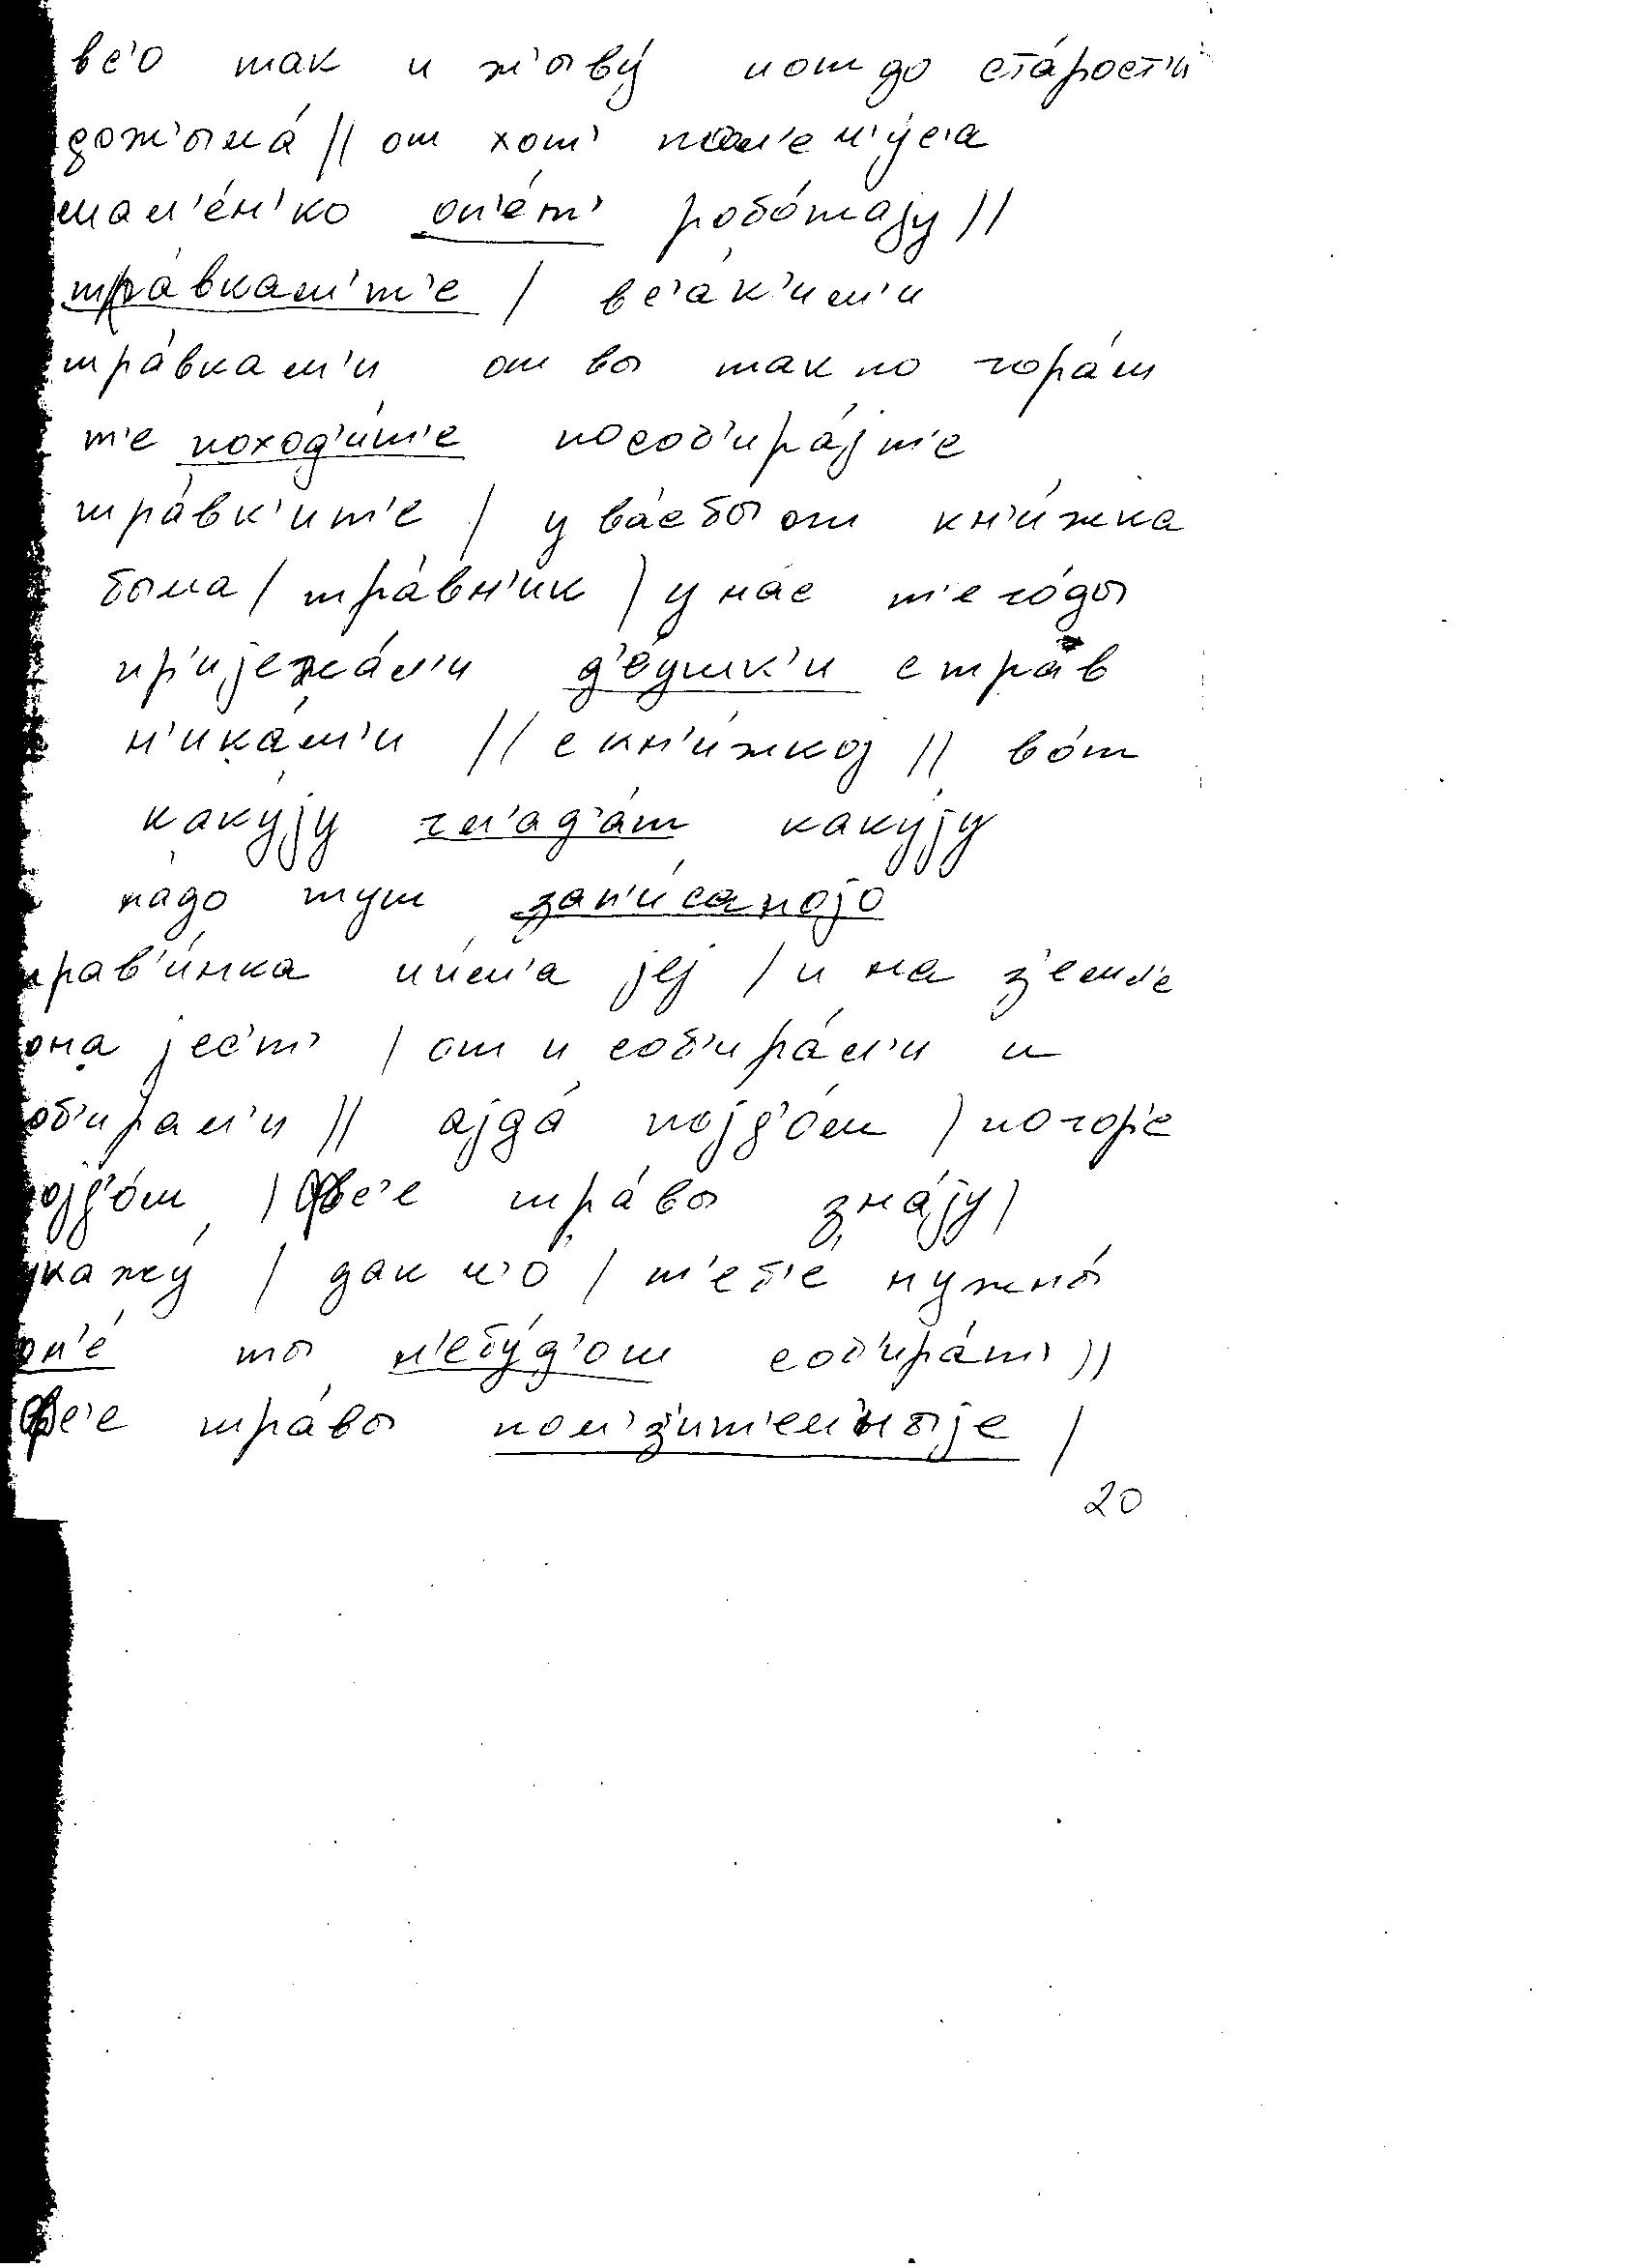 вс'о так и ж'ыву́ и от до ста́рост'и
дож'ыла́ || от хот' пол'еч'у́с'а
мал'е́н'ко оп'е́т' робо́тају ||
тра́вкам'т'е | вс'а́к'им'и
тра́вкам'и от вы так по гора́м
т'е поход'и́т'е пособ'ира́јт'е
тра́вк'ит'е | у ва́с бы от кн'и́жка
была | тра́вн'ик | у на́с т'е го́ды
пр'ијежа́л'и д'е́ушк'и с тра́в
н'ика́м'и || с кн'и́жкој || во́т
каку́ју гл'ад'а́т каку́ју
на́до тут зап'и́саноjо
трав'и́нка и и́м'а јеј | и на з'емл'е
она јес'т' | от и соб'ира́л'и и
об'ирал'и || ајда́ појд'о́м | по гор'е
ојд'о́м | вс'е тра́вы зна́ју |
укажу́ | дак ч'о | т'еб'е нужны́
он'е́ ты н'ебу́д'ош соб'ира́т' ||
вс'е тра́вы пол'з'ит'ел'ныје |
20